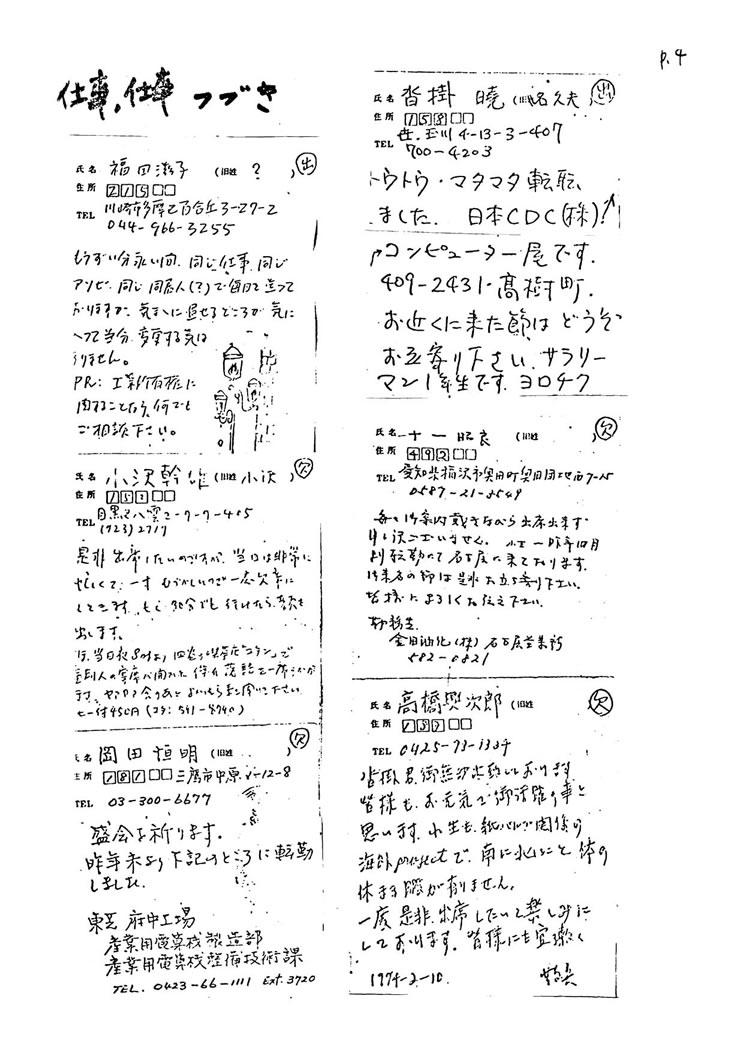 p.4
仕事,仕事 つづき
氏名 福田滋子 (旧姓 ? ) 出
住所 215□□
川崎市多摩区百合丘3-27-2
TEL 044-966-3255
もうずい分永い間、同じ仕事、同じ
アソビ、同じ同居人(?)で毎日を送って
おりますが、気まゝに過せるところが気に
入って当分変更する気は
ありません。
PR: 工業所有権に
関することなら、何でも
ご相談下さい。
氏名 小沢幹雄 (旧姓 小沢 ) 欠
住所 152□□
目黒区八雲2-7-7-405
TEL (723)2717
是非出席したいのですが、当日は非常に
忙しくて、一寸むづかしいので一応欠席に
しておきます。もし30分でも行けたら顔を
出します。
七一付450円
氏名 岡田恒明 (旧姓 ) 欠
住所 181□□ 三鷹市中原 -12-8
TEL 03-300-6677
盛会を祈ります。
昨年末より下記のところに転勤
しました。
東芝 府中工場
産業用電算機製造部
産業用電算機整備技術課
TEL. 0423-66-1111 Ext. 3720
氏名 沓掛 暁 (旧名 久夫 ) 出
住所 158□□
世.玉川4-13-3-407
TEL 700-4203
トウトウ・マタマタ転転、
ました. 日本CDC(株)!
コンピューター屋です.
409-2431・高樹町.
お近くに来た節は どうぞ
お立寄り下さい. サラリー
マン1年生です. ヨロチク
氏名 十一昭良 (旧姓 ) 欠
住所 492□□
TEL 愛知県稲沢市奥田町奥田団地西7-25
0587-21-8549
毎々御案内戴きながら出席出来ず
申し訳ございません。 小生一昨年四月
より転勤にて名古屋に来ております。
御来名の節は是非お立ち寄り下さい。
皆様によろしくお伝え下さい。
勤務先
金田油化(株) 名古屋営業所
582-0821
氏名 高橋興次郎 (旧姓 ) 欠
住所 187□□
TEL 0425-73-1334
沓掛君御無沙汰致しております
皆様も、お元気で御活躍の事と
思います. 小生も、紙パルプ関係の
海外projectで、南に北にと 体の
休まる暇が有りません。
一度是非、出席したいと楽しみに
しております。皆様にも宜敷く
1974-2-10.